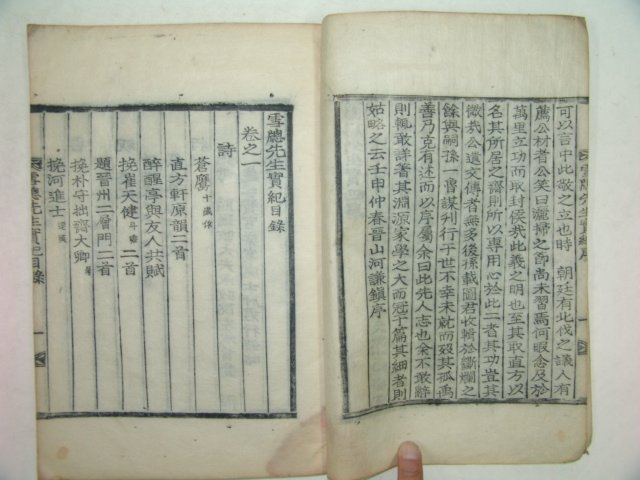 可以言中此敬之立也時 朝廷有北伐之議人有
薦公材者公笑曰灑掃之節尚未習焉何暇念及於
萬里立功而取封侯我此義之明也至其取直方以
名其所居之齋則所以專用心於此二者其功豈其
微我公遺文傳者無多後孫載圖君收輯於斷爛之
餘與嗣孫一魯謀刊行于世不幸未就而歿其孤爲
善乃克有述而以序屬余曰此先人志也余不敢辭
則輒敢詳著其淵源家學之大而冠于篇其細者則
姑略之云壬申仲春晉山河謙鎭序
雪牕先生實紀序
雪牕先生實紀目錄
卷之一
詩
蒼鷹 十歲作
直方軒原韻二首
醉醒亭與友人共賦
挽崔天健 斗 二首
題晉州二層門二首
挽朴守拙齋大卿
挽河進士
雪牕先生實紀目錄 一